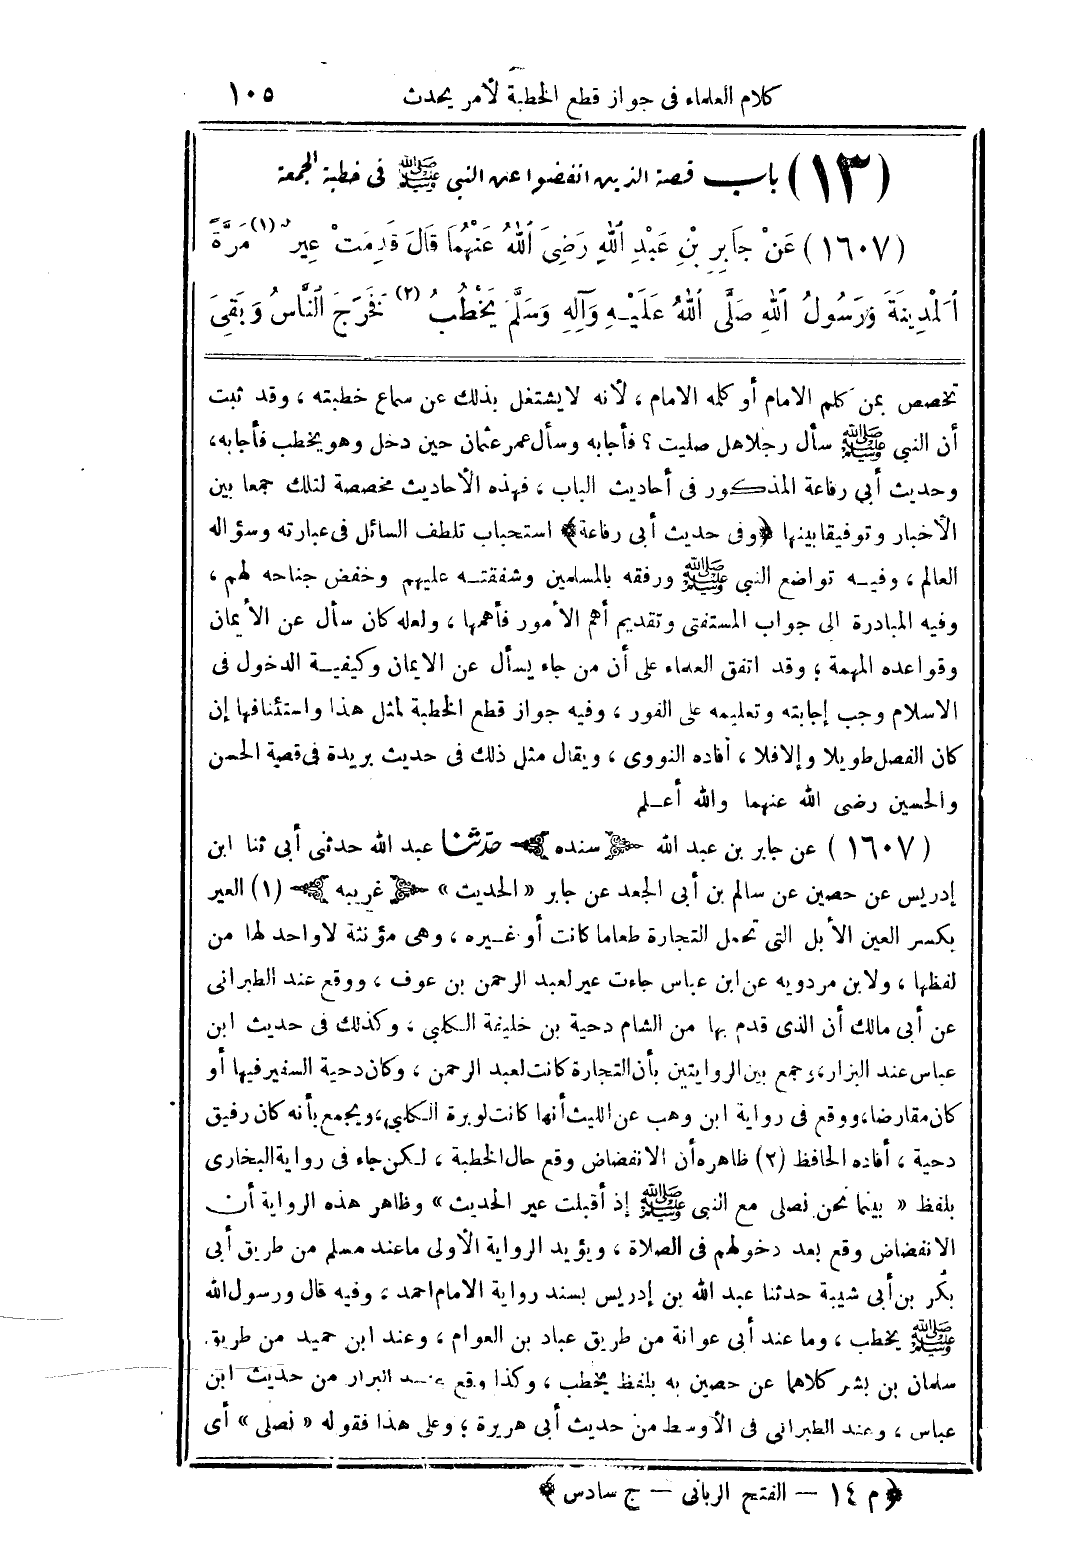 كلام العلماء فى جواز قطع الخطبة لأمر يحدث ١٠٥
(١٣) باب قصة الذين انفضوا عن النبي ﷺ فى خطبة الجمعة
(١٦٠٧) عَنْ جَابِرِ بْنِ عَبْدِ اللهِ رَضِىَ اللهُ عَنْهُمَا قَالَ قَدِمَتْ عِيرٌ (١) مَرَّةً
اُلْمَدِينَةَ وَرَسُولُ اللهِ صَلَّى اللهُ عَلَيْهِ وَآلِهِ وَسَلَّمَ يَخْطُبُ (٢) فَخَرَجَ النَّاسُ وَبَقِىَ
تخصص بمن كلم الامام أو كلمه الامام ، لأنه لا يشتغل بذلك عن سماع خطبته ، وقد ثبت
أن النبي ﷺ سأل رجلا هل صليت ؟ فأجابه وسأل عمر عثمان حين دخل وهو يخطب فأجابه،
وحديث أبي رفاعة المذكور فى أحاديث الباب ، فهذه الأحاديث مخصصة لتلك جمعا بين
الأخبار وتوفيقا بينها ﴿وفى حديث أبى رفاعة﴾ استحباب تلطف السائل فى عبارته وسؤاله
العالم ، وفيـه تواضع النبي ﷺ ورفقه بالمسلمين وشفقتـه عليهم وخفض جناحه لهم ،
وفيه المبادرة الى جواب المستفتى وتقديم أهم الأمور فأهمها ، ولعله كان سأل عن الأيمان
وقواعده المهمة ؛ وقد اتفق العلماء على أن من جاء يسأل عن الايمان وكيفيـة الدخول فى
الاسلام وجب إجابته وتعليمه على الفور ، وفيه جواز قطع الخطبة لمثل هذا واستئنافها إن
كان الفصل طويلا وإلا فلا ، أفاده النووى ، ويقال مثل ذلك فى حديث بريدة فى قصة الحسن
والحسين رضى الله عنهما والله أعـلم
(١٦٠٧) عن جابر بن عبد الله سنده حدثنا عبد الله حدثنى أبى ثنا ابن
إدريس عن حصين عن سالم بن أبى الجعد عن جابر « الحديث » غريبه (١) العير
بكسر العين الأبل التى تحمل التجارة طعاما كانت أو غـيره ، وهى مؤنثة لاواحد لها من
لفظها ، ولابن مردويه عن ابن عباس جاءت عير لعبد الرحمن بن عوف ، ووقع عند الطبرانى
عن أبى مالك أن الذى قدم بها من الشام دحية بن خليفة الكلبي ، وكذلك فى حديث ابن
عباس عند البزار، وجمع بين الروايتين بأن التجارة كانت لعبد الرحمن ، وكان دحية السفير فيها أو
كان مقارضا، ووقع فى رواية ابن وهب عن الليث أنها كانت لوبرة الكلبي، ويجمع بأنه كان رفيق
دحية ، أفاده الحافظ (٢) ظاهره أن الانفضاض وقع حال الخطبة ، لكن جاء فى رواية البخارى
بلفظ « بينما نحن نصلى مع النبي ﷺ إذ أقبلت عير الحديث » وظاهر هذه الرواية أن
الانفضاض وقع بعد دخولهم فى الصلاة ، ويؤيد الرواية الأولى ما عند مسلم من طريق أبى
بكر بن أبى شيبة حدثنا عبد الله بن إدريس بسند رواية الامام احمد ، وفيه قال ورسول الله
ﷺ يخطب ، وما عند أبى عوانة من طريق عباد بن العوام ، وعند ابن حميد من طريق
سلمان بن بشر كلاهما عن حصين به بلفظ يخطب ، وكذا وقع عنـد البزار من حديث ابن
عباس ، وعند الطبرانى فى الأوسط من حديث أبى هريرة ؛ وعلى هذا فقوله « نصلى » أى
﴿م ١٤ — الفتح الربانى — ج سادس﴾